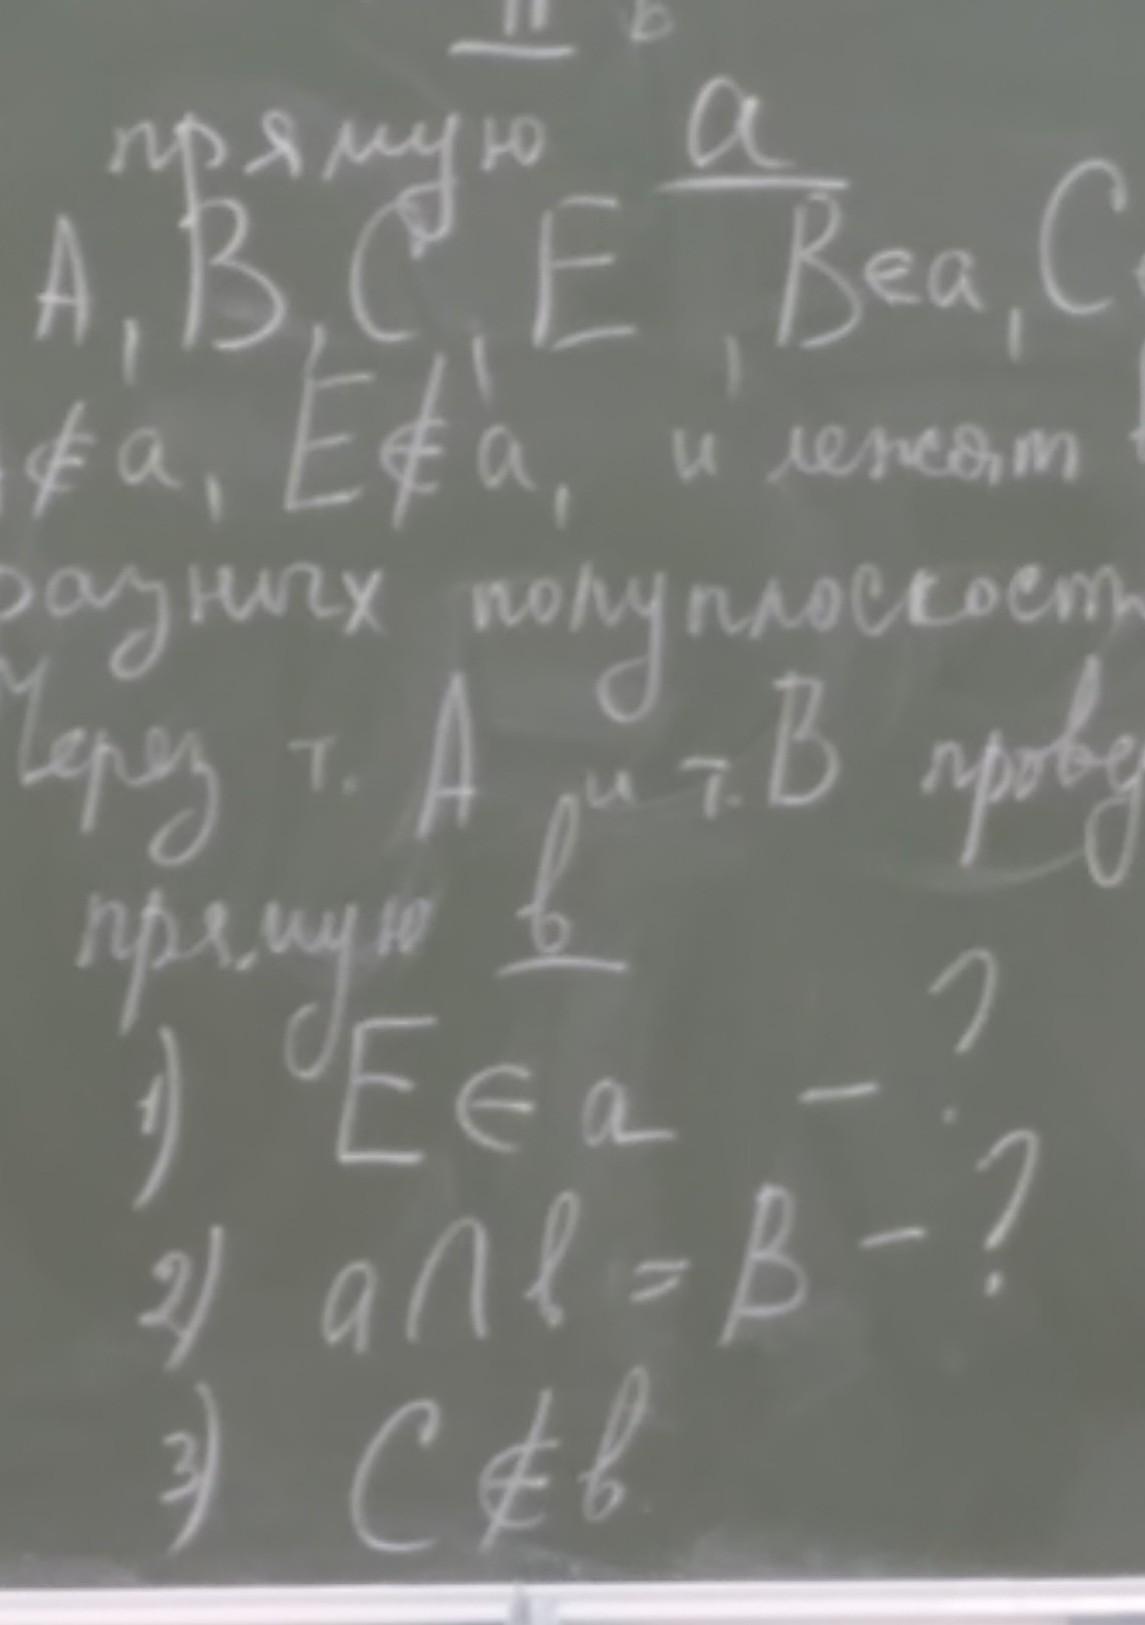 в
прямую a
A, B, C, E, B∈a, C
∉ a, E∉a, и лежат
разных полуплоскост
Через т. A и т. B провед
прямую b
1) E ∈ a - ?
2) a∩b = B - ?
3) C ∉ b